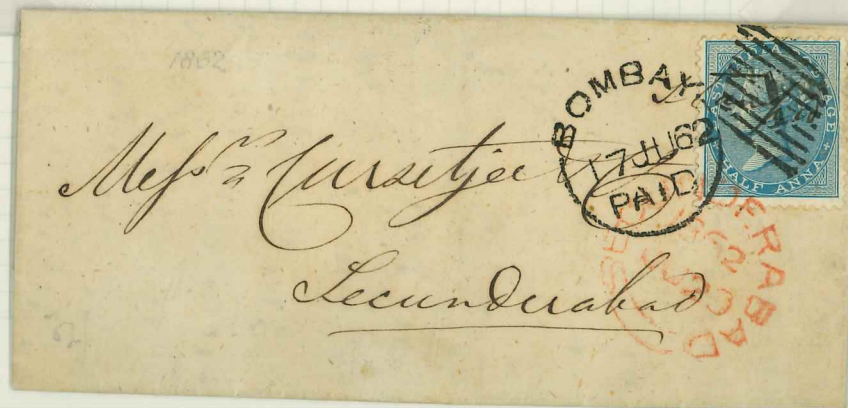 1862
BOMBAY
17 JU 62
PAID
HALF ANNA
Messrs Cursetjee
Secunderabad